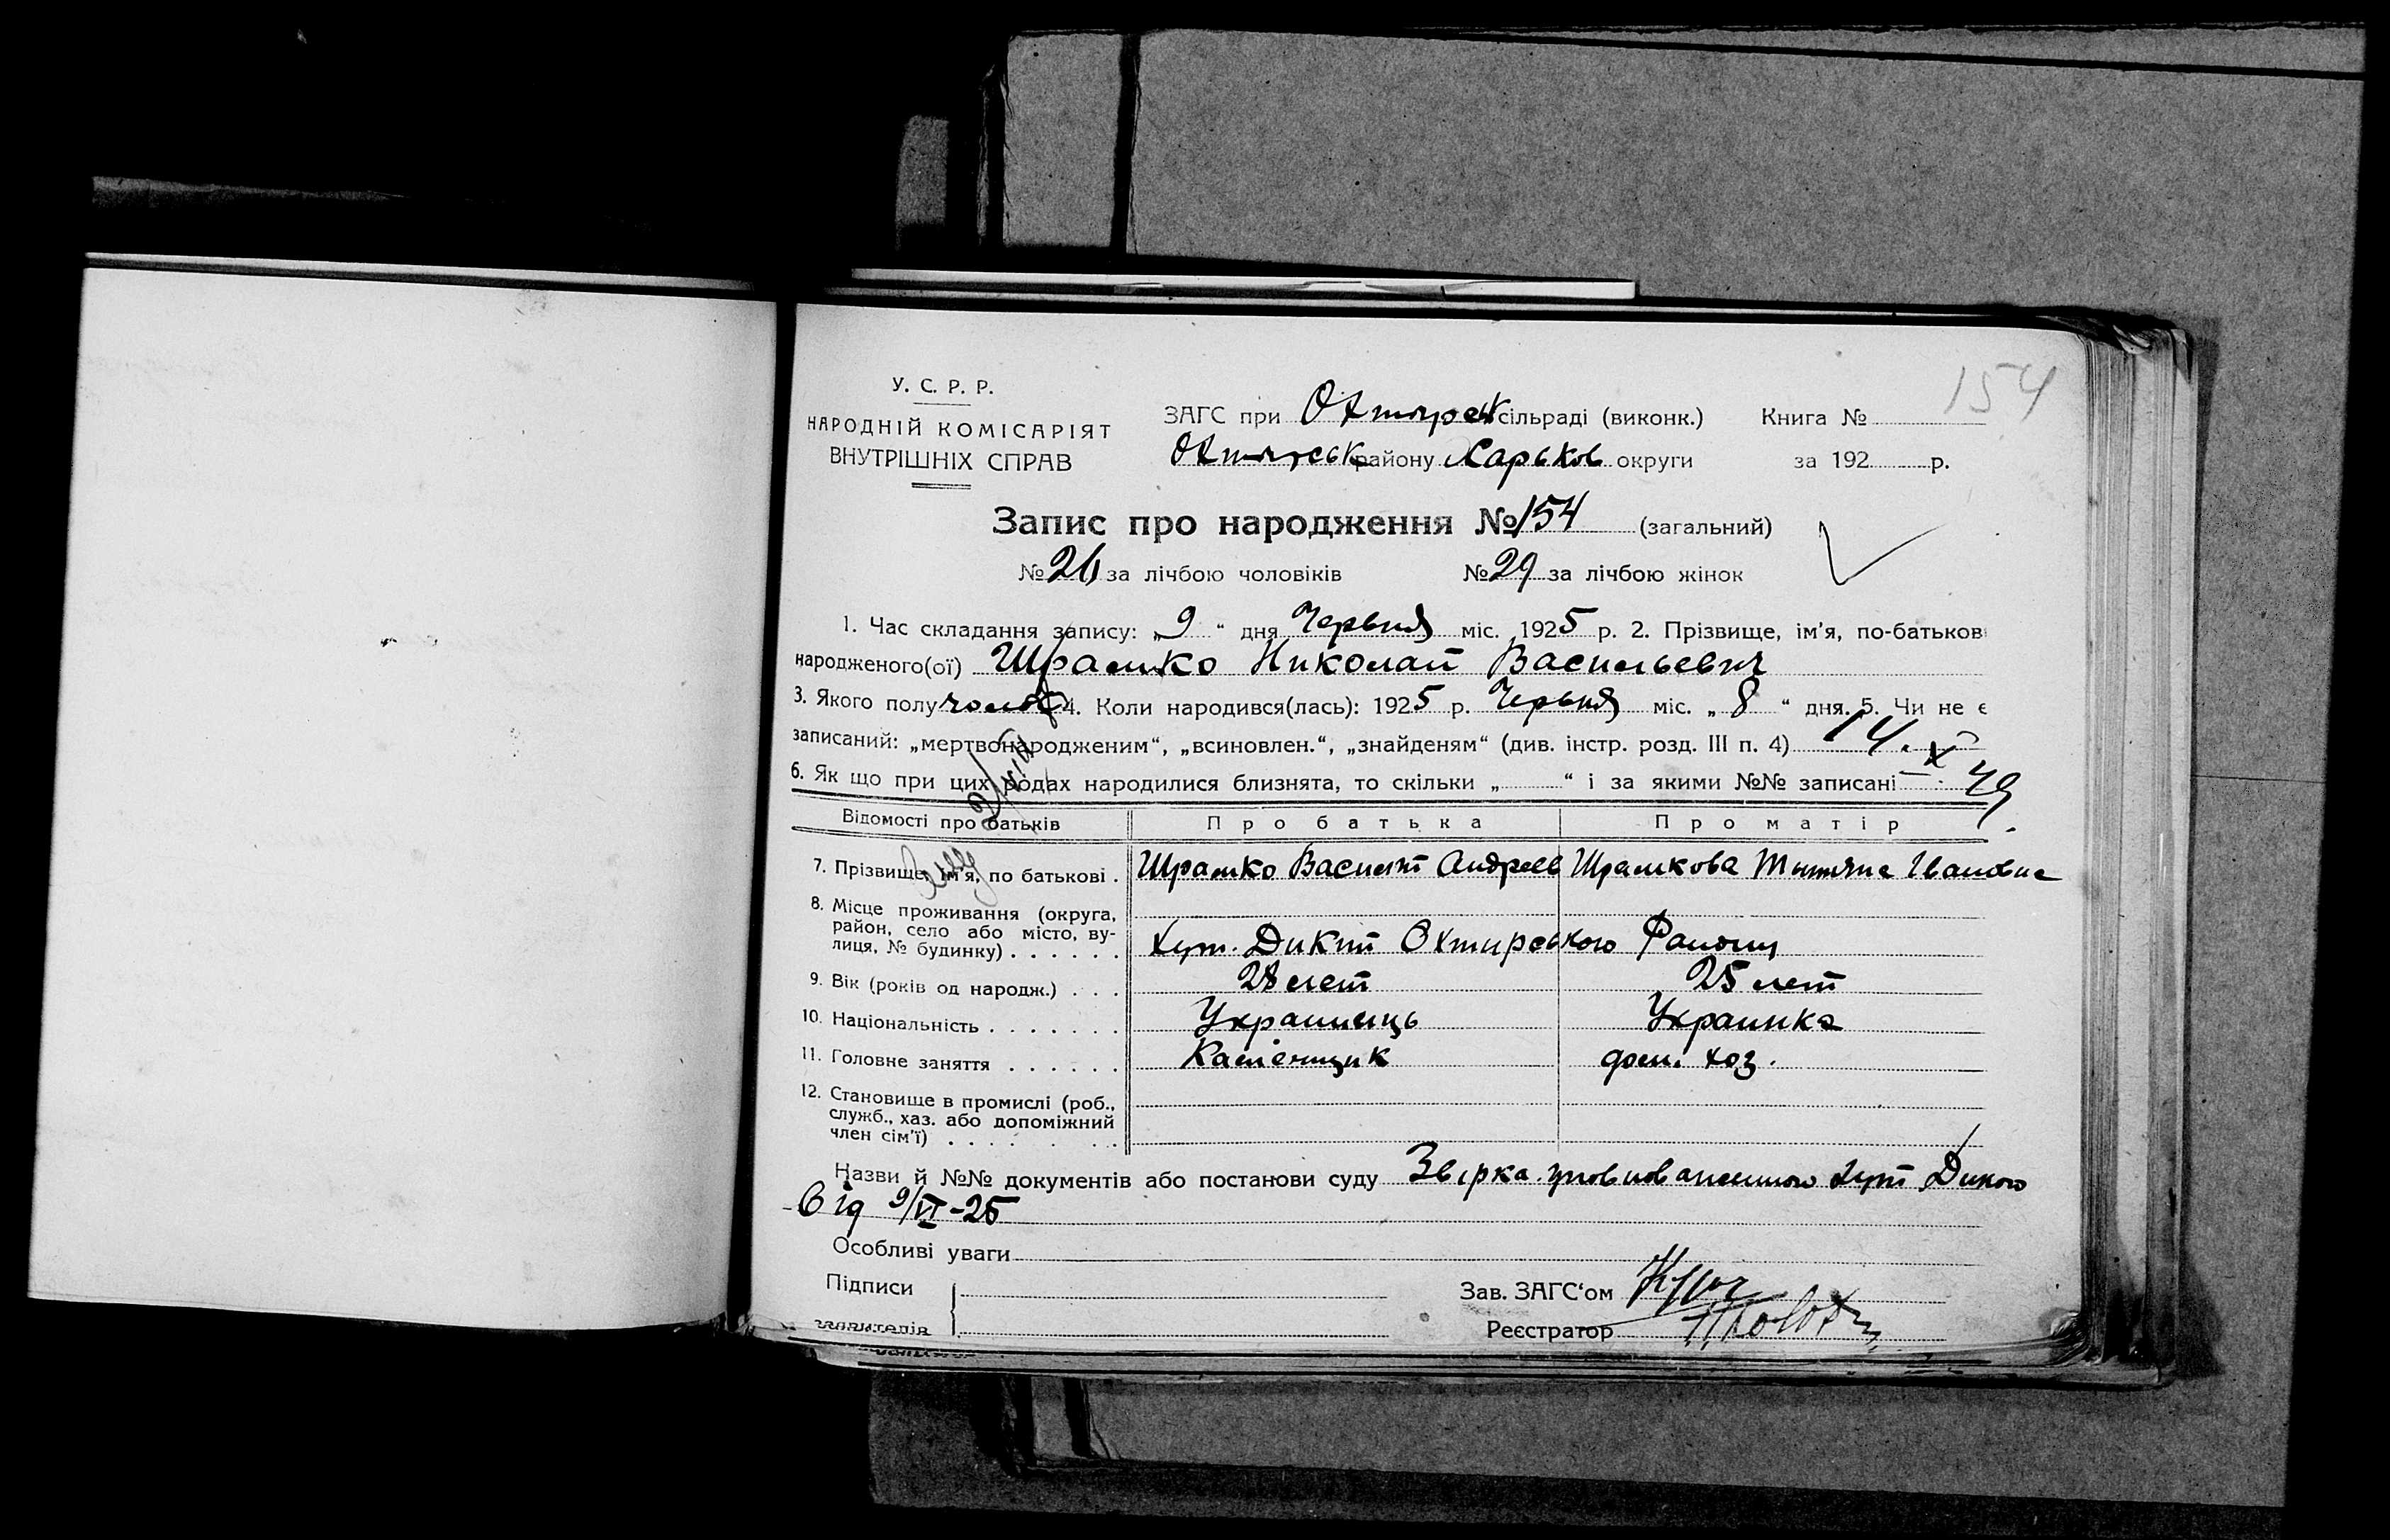 154
У. С. Р. Р.
НАРОДНІЙ КОМІСАРІЯТ
ВНУТРІШНІХ СПРАВ
ЗАГС при Охтирськ сільраді (виконк.) Книга №
Охтирськ району Харьков округи за 192 р.
Запис про народження № 154 (загальний)
№ 26 за лічбою чоловіків № 29 за лічбою жінок
1. Час складання запису: „9“ дня Червня міс. 1925 р. 2. Прізвище, ім’я, по-батькові
народженого(ої) Шрамко Николай Васильевич
3. Якого полу чолов 4. Коли народився(лась): 1925 р. Червня міс. „8“ дня. 5. Чи не є
записаний: „мертвонародженим“, „всиновлен.“, „знайденям“ (див. інстр. розд. III п. 4) 14. X
6. Як що при цих родах народилися близнята, то скільки „ “ і за якими №№ записані — 49
Відомості про батьків Про батька Про матір
7. Прізвище, ім’я, по батькові . Шрамко Василий Андреев Шрамкова Татяна Ивановна
8. Місце проживання (округа,
район, село або місто, ву-
лиця, № будинку) . . . . . . Хут. Дикий Охтирського Району
9. Вік (років од народж.) . . . 28 лет 25 лет
10. Національність . . . . . . . Украинець Украинка
11. Головне заняття . . . . . . Каменщик дом. хоз.
12. Становище в промислі (роб.,
служб., хаз. або допоміжний
член сім’ї) . . . . . . . .
Назви й №№ документів або постанови суду Звірка уповноваженного хут Дикого
від 9/VI-25
Особливі уваги
Підписи
заявителів
Зав. ЗАГС‘ом
Реєстратор